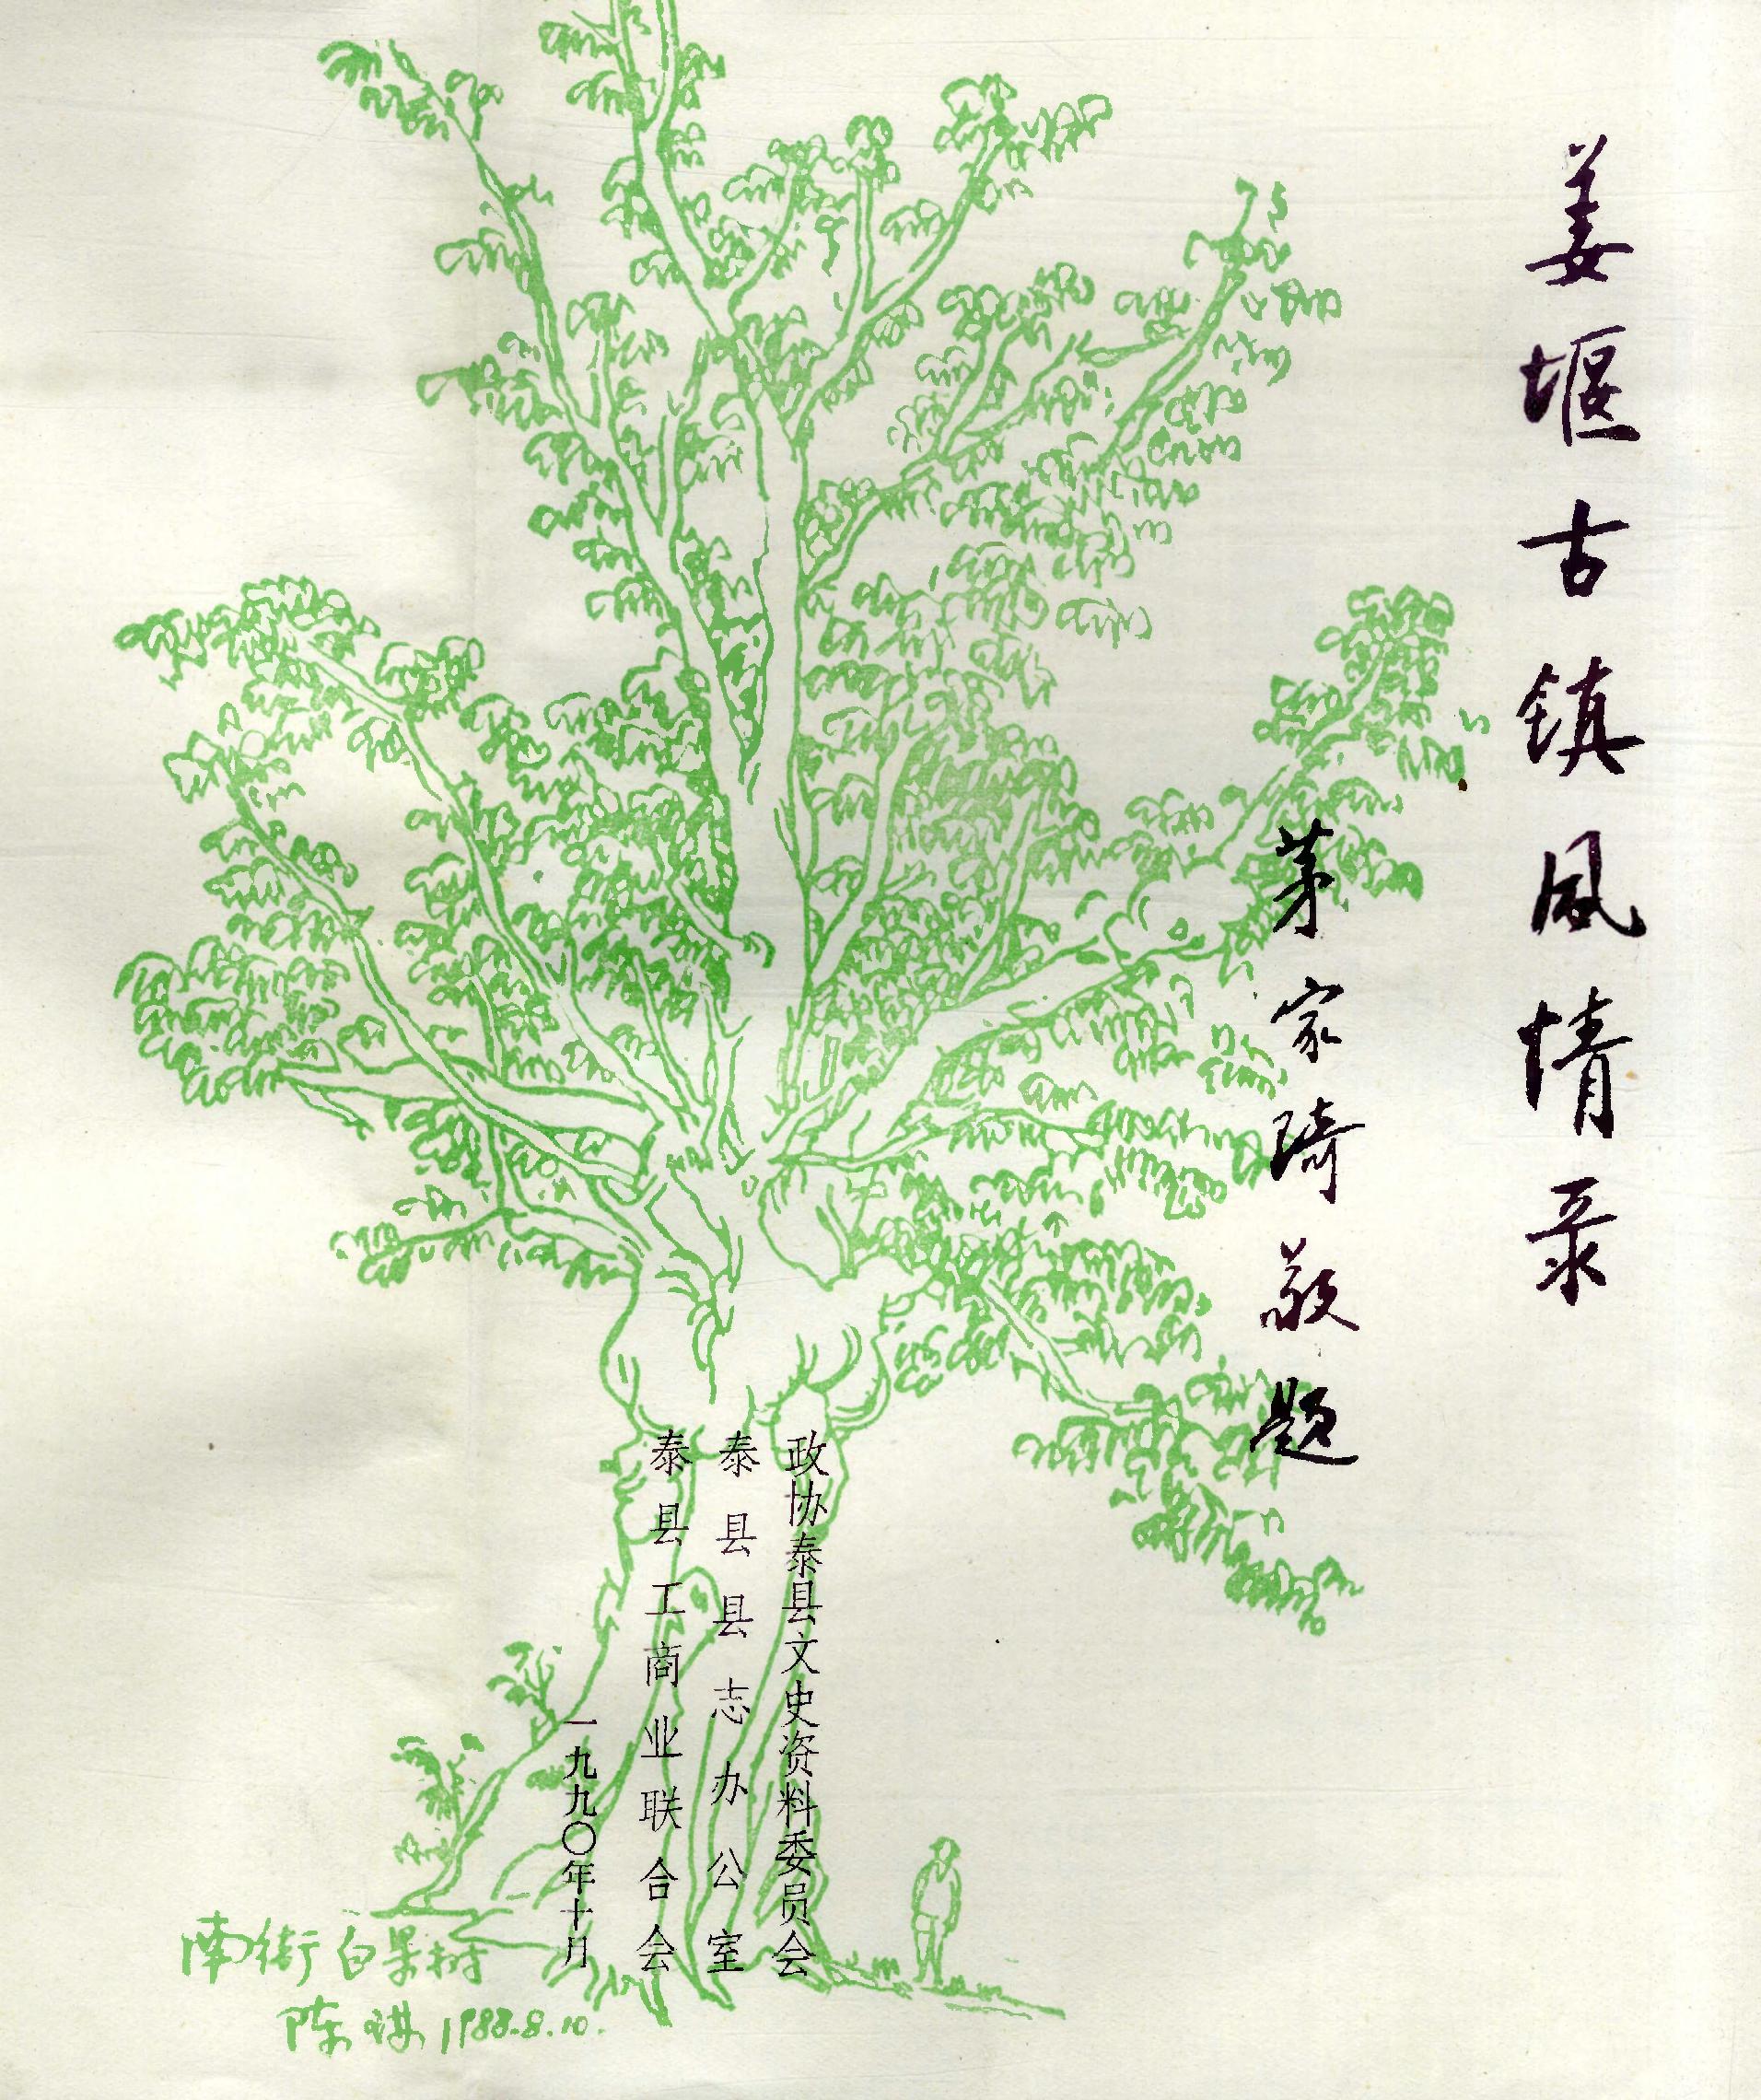 姜堰古镇风情录
茅家琦敬题
政协泰县文史资料委员会
泰县县志办公室
泰县工商业联合会
一九九〇年十月
南街白果树
陈 1988.8.10.